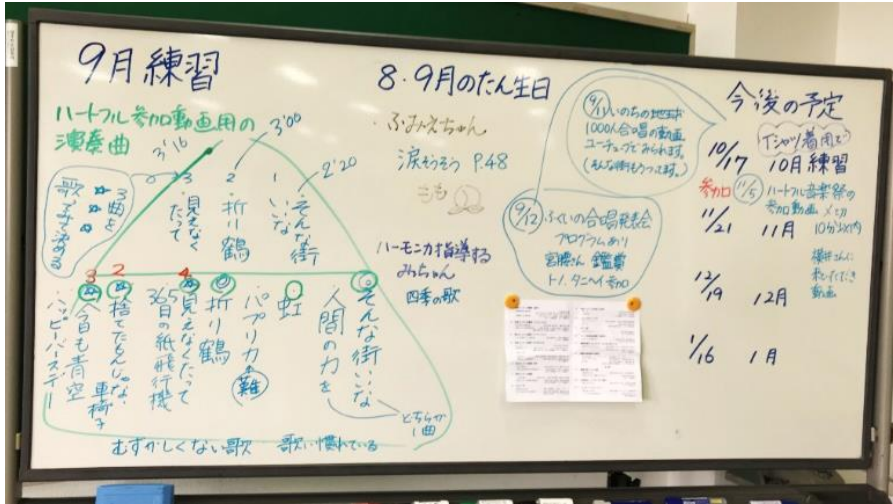 9月練習
ハートフル参加動画用の
演奏曲
3曲を
歌ってみて決める
3'16
3'00
2'20
1
・そんな街
いいな
2
・折り鶴
3
・見えなく
たって
・そんな街いいな
人間の力を
どちらか
1曲
・虹
・パプリカ 難
・折り鶴
4
・見えなくたって
365日の紙飛行機
2
・捨てたもんじゃない
車椅子
3
・今日も青空
ハッピーバースデー
むずかしくない歌 歌い慣れている
8・9月のたん生日
・ふみえちゃん
涙そうそう P.48
もも
ハーモニカ指導する
みっちゃん
四季の歌
9/11 いのちの地球
1000人合唱の動画
ユーチューブでみられます。
(そんな街もうつってます。)
9/12 ふくいの合唱発表会
プログラムあり
宮腰さん 鑑賞
トノ、タニヘイ参加
今後の予定
Tシャツ着用で
10/17 10月練習
参加 11/5 ハートフル音楽祭の
参加動画〆切
10分以内
11/21 11月
横井さんに
動画
12/19 12月
1/16 1月